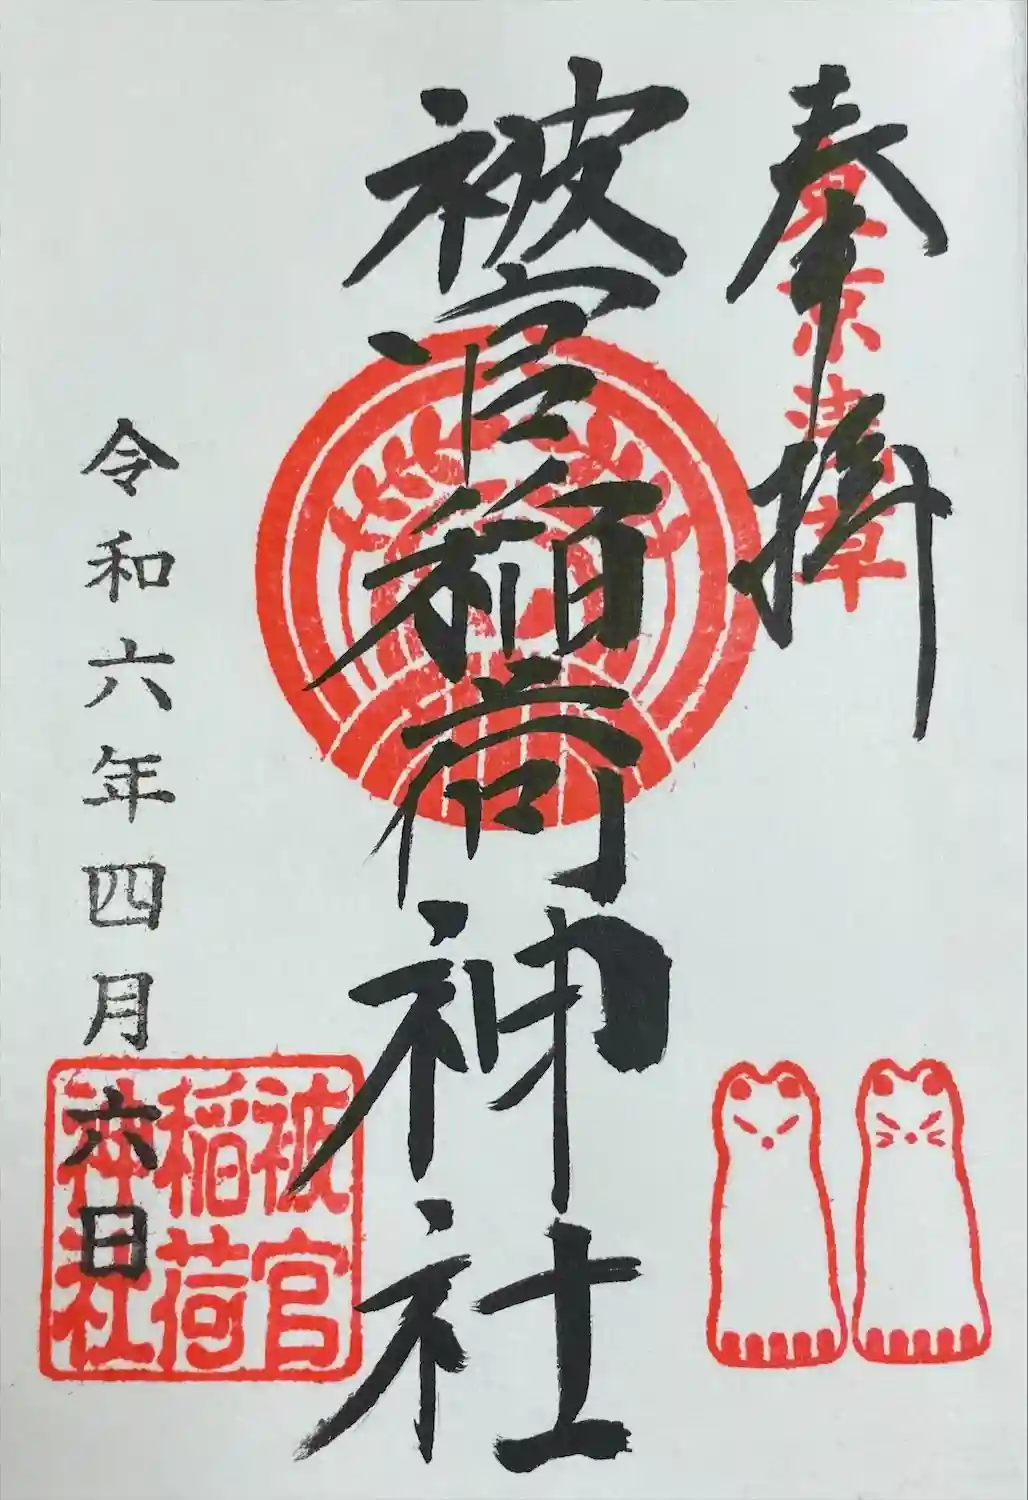 奉拝
東京浅草
被官稲荷神社
令和六年四月六日
被官
稲荷
神社